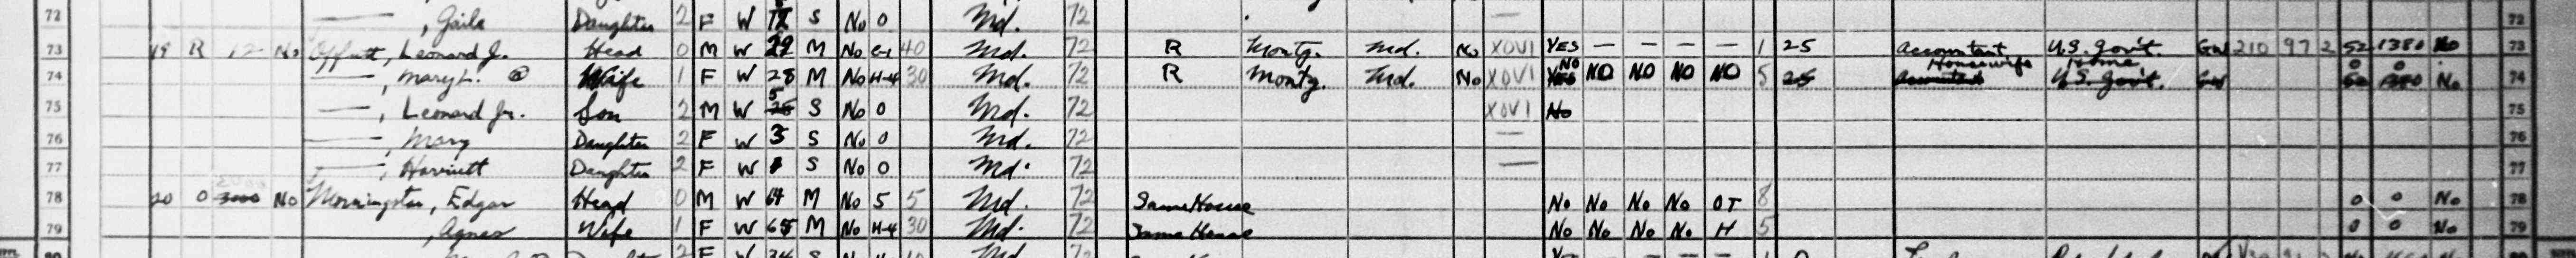 72 —, Gaile Daughter 2 F W S No 0 Md. 72 — 72
73 49 R 12 No Offutt, Leonard J. Head 0 M W 29 M No C-1 40 Md. 72 R Montg. Md. No X0V1 YES — — — — 1 25 Accountant U.S. Gov't. GW 210 97 2 52 1380 No 73
74 —, Mary L. Wife 1 F W 28 M No H-4 30 Md. 72 R Montg. Md. No X0V1 No NO NO NO NO 5 25 Housewife Home Accountant U.S. Gov't. GW 0 0 No 74
75 —, Leonard Jr. Son 2 M W 5 S No 0 Md. 72 X0V1 No 75
76 —, Mary Daughter 2 F W 3 S No 0 Md. 72 — 76
77 —, Harriett Daughter 2 F W S No 0 Md. 72 — 77
78 20 0 3000 No Morningstar, Edgar Head 0 M W 64 M No 5 5 Md. 72 Same House No No No No OT 8 0 0 No 78
79 , Agnes Wife 1 F W 65 M No H-4 30 Md. 72 Same House No No No No H 5 0 0 No 79